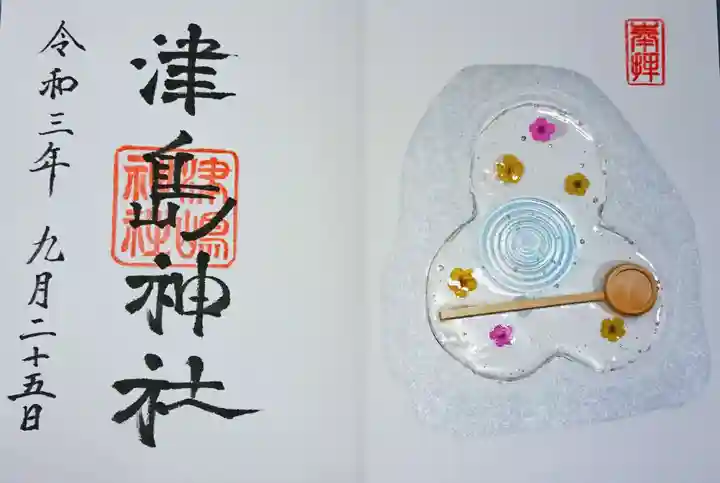 奉拝
津島神社
津嶋神社
令和三年 九月二十五日